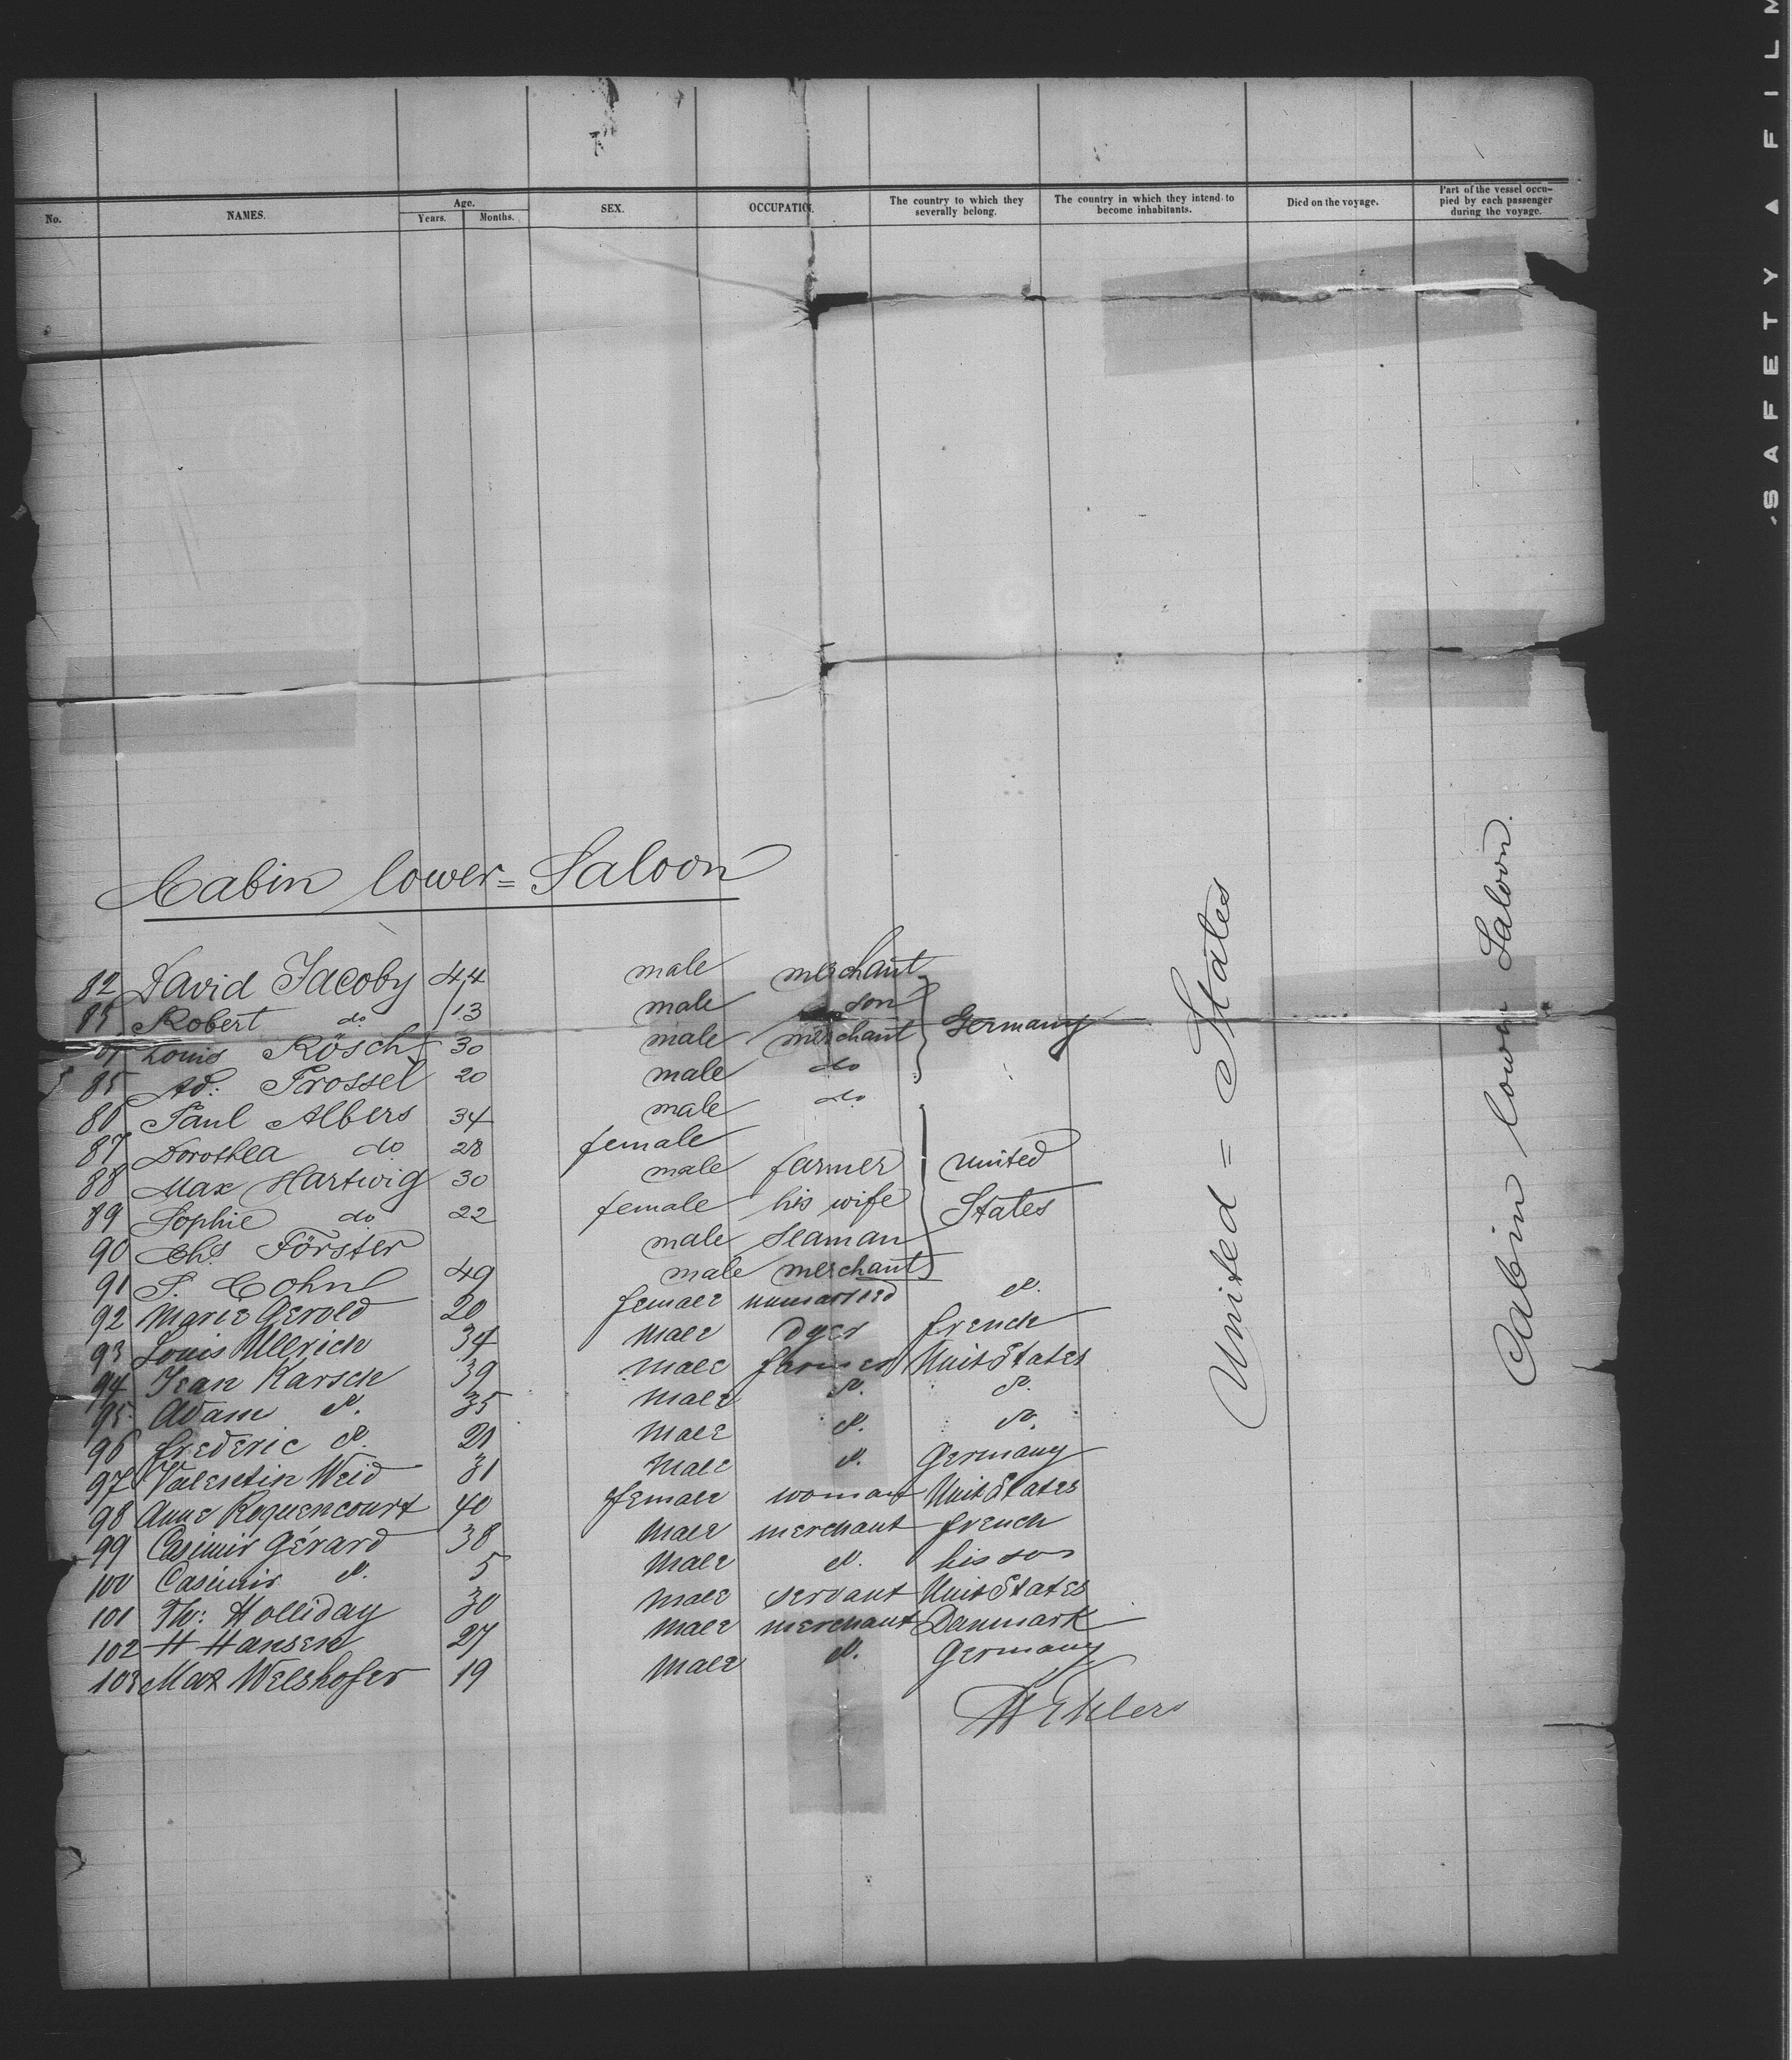 No. NAMES. Age. Years. Months. SEX. OCCUPATION. The country to which they severally belong. The country in which they intend to become inhabitants. Died on the voyage. Part of the vessel occupied by each passenger during the voyage.
Cabin lower = Saloon
82 David Jacoby 44 male merchant
83 Robert do 13 male son
Louis Rösch 30 male merchant Germany
85 Ad: Trossel 20 male do
86 Paul Albers 34 male do
87 Dorothea do 28 female
88 Max Hartwig 30 male farmer United
89 Sophie do 22 female his wife States
90 Chs. Förster male Seaman
91 S. Cohn 49 male merchant
92 Marie Gerold 20 female unmarried d.
93 Louis Ullrich 34 male dyer french
94 Jean Karsch 39 male farmer Unit States
95 Adam d. 35 male d. d.
96 frederic d. 21 male d. d.
97 Valentin Weid 31 male d. Germany
98 Anne Roquencourt 40 female woman Unit States
99 Casimir Gérard 38 male merchant french
100 Casimir d. 5 male d. his son
101 Th: Holliday 30 male servant Unit States
102 H Hansen 27 male merchant Danmark
103 Max Welshofer 19 male d. Germany
United = States
Cabin lower Saloon.
Ehlers
SAFETY ▲ FILM